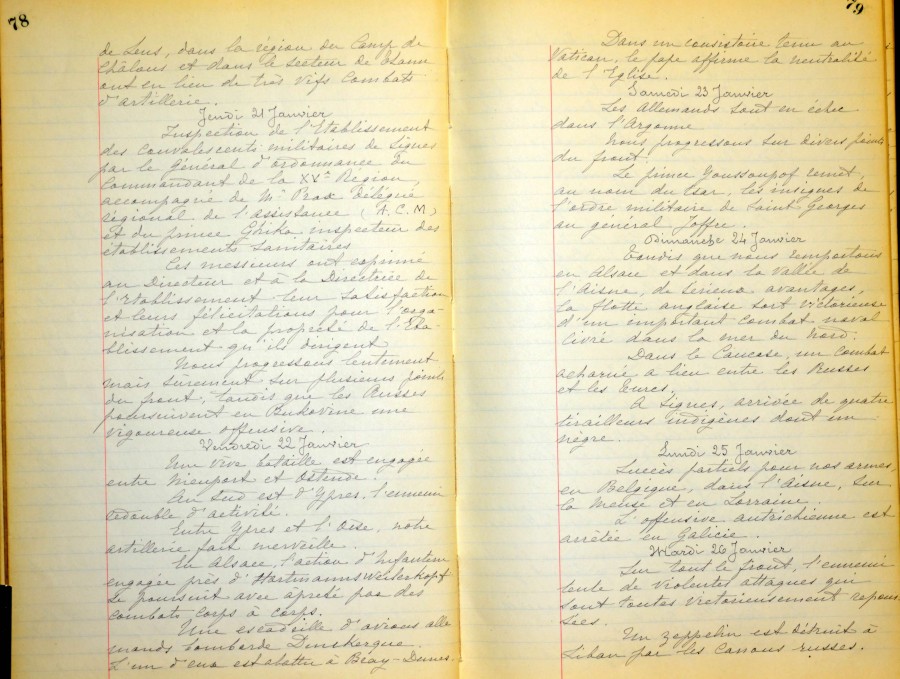 78
de Lens, dans la région du Camp de
Châlons et dans le secteur de
ont eu lieu de très vifs combats
d'artillerie.
Jeudi 21 Janvier
Inspection de l'Etablissement
des convalescents militaires de Signes
par le Général d'ordonnance du
Commandant de la XVe Région,
accompagné de Mr Prax Délégué
régional de l'assistance (A.C.M.)
et du prince Ghika inspecteur des
établissements sanitaires
Ces messieurs ont exprimé
au Directeur et à la Directrice de
l'Etablissement leur satisfaction
et leurs félicitations pour l'orga-
nisation et la propreté de l'Eta-
blissement qu'ils dirigent
Nous progressons lentement
mais sûrement sur plusieurs points
du front, tandis que les Russes
poursuivent en Bukovine une
vigoureuse offensive.
Vendredi 22 Janvier
Une vive bataille est engagée
entre Nieuport et Ostende.
Au sud est d'Ypres, l'ennemi
redouble d'activité.
Entre Ypres et l'Oise, notre
artillerie fait merveille.
En Alsace, l'action d'Infanterie
engagée près d'Hartmannsweilerkopf
se poursuit avec apreté par des
combats corps à corps.
Une escadrille d'avions alle
mands bombarde Dunkerque.
L'un d'eux est abattu à Bray-Dunes.
79
Dans un consistoire tenu au
Vatican, le pape affirme la neutralité
de l'Eglise.
Samedi 23 Janvier
Les Allemands sont en échec
dans l'Argonne
Nous progressons sur divers points
du front.
Le prince Youssoupof remet,
au nom du tsar, les insignes de
l'ordre militaire de Saint Georges
au général Joffre.
Dimanche 24 Janvier
Tandis que nous remportons
en Alsace et dans la Vallée de
l'Aisne, de sérieux avantages,
la flotte anglaise sort victorieuse
d'un important combat naval
livré dans la mer du Nord.
Dans le Caucase, un combat
acharné a lieu entre les Russes
et les Turcs.
A Signes, arrivée de quatre
tirailleurs indigènes dont un
nègre.
Lundi 25 Janvier
Succès partiels pour nos armes,
en Belgique, dans l'Aisne, sur
la Meuse et en Lorraine.
L'offensive autrichienne est
arrêtée en Galicie.
Mardi 26 Janvier
Sur tout le front, l'ennemi
tente de violentes attaques qui
sont toutes victorieusement repous
sées.
Un zeppelin est détruit à
Libau par les canons russes.